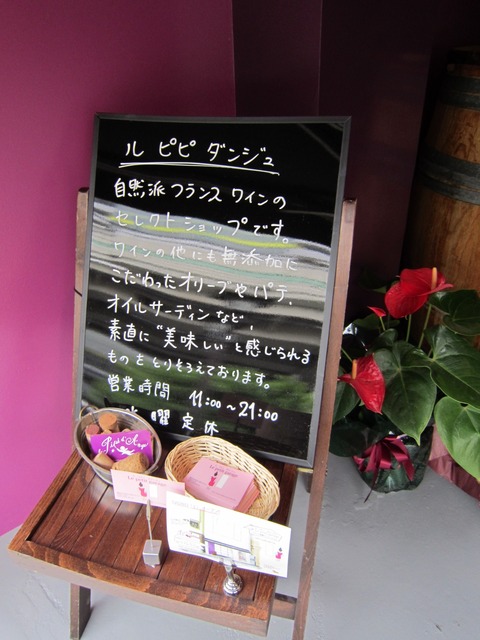 ル ピピ ダンジュ
自然派フランス ワインの
セレクトショップです。
ワインの他にも無添加に
こだわったオリーブや パテ、
オイルサーディン など、
素直に"美味しい"と感じられる
ものを とりそろえております。
営業時間 11:00~21:00
曜 定休
Pipi d'Ange